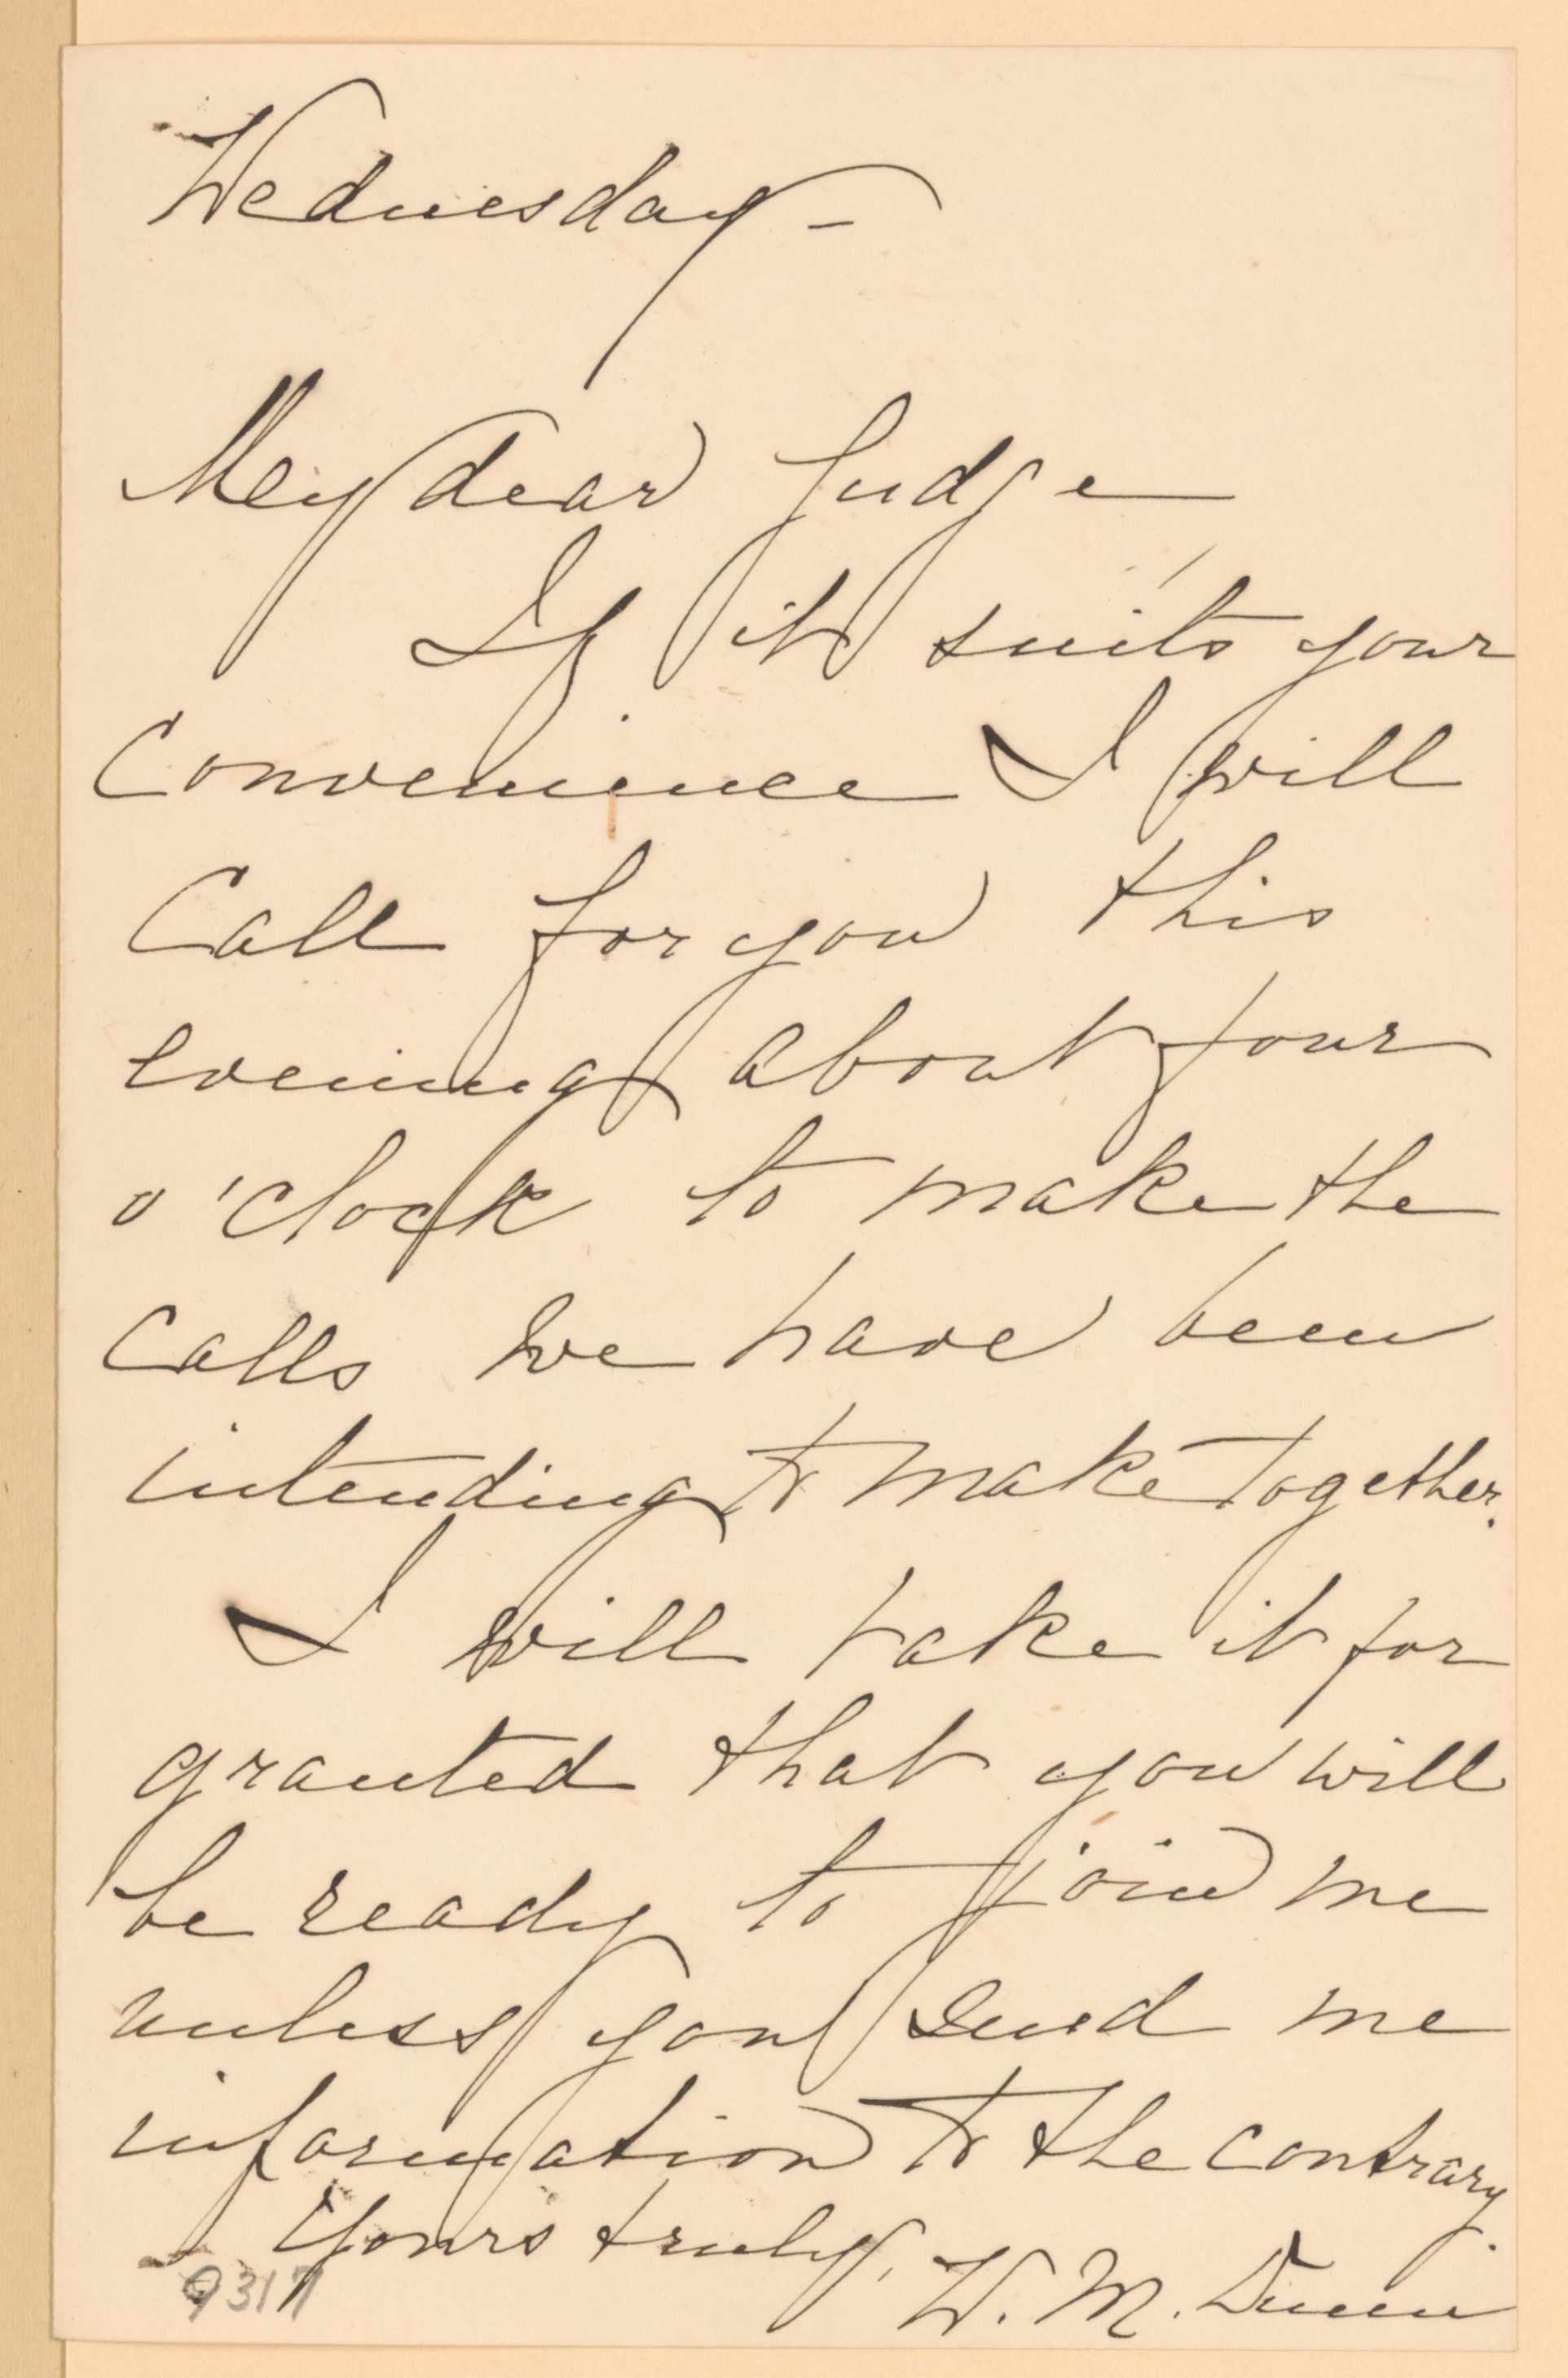 Wednesday –
My dear Judge
If it suits your
Convenience I will
Call for you this
evening about four
o'clock to make the
Calls we have been
intending to make together.
I will take it for
granted that you will
be ready to join me
unless you send me
information to the contrary.
Yours truly, W. M. Dunn
9317